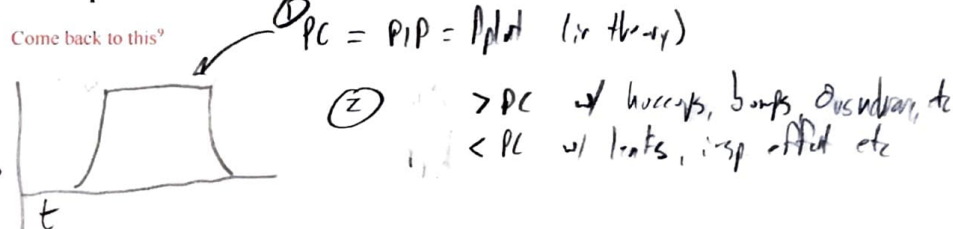 Come back to this⁹
① PC = PIP = Pplat (in theory)
② > PC w/ hiccups, bumps, etc
< PC w/ leaks, insp effort etc
t